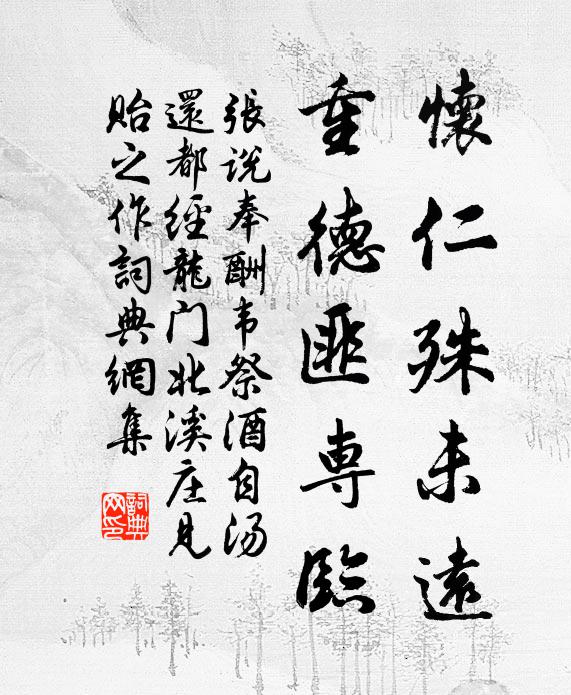 懷仁殊未遠
重德匪專臨
張說奉酬韦祭酒自汤
還都經龍门北溪庄見
貽之作詞典網集
詞典
网印